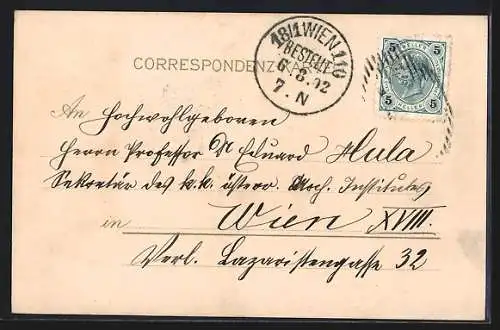 18/1 WIEN 110
BESTELLT
6. 8. 02
7. N
CORRESPONDENZ-KARTE
5 5
5 HELLER 5
An Hochwohlgeboren
Herrn Professor Dr Eduard Hula
Sekretär des k. k. österr. Arch. Institutes
in Wien XVIII.
Verl. Lazaristengasse 32